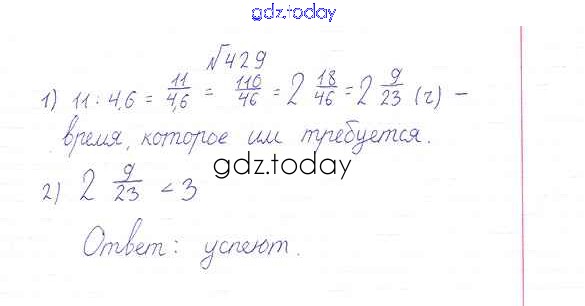 gdz.today
№429
1) 11 : 4,6 = 11/4,6 = 110/46 = 2 18/46 = 2 9/23 (г) –
время, которое им требуется.
gdz.today
2) 2 9/23 < 3
Ответ: успеют.